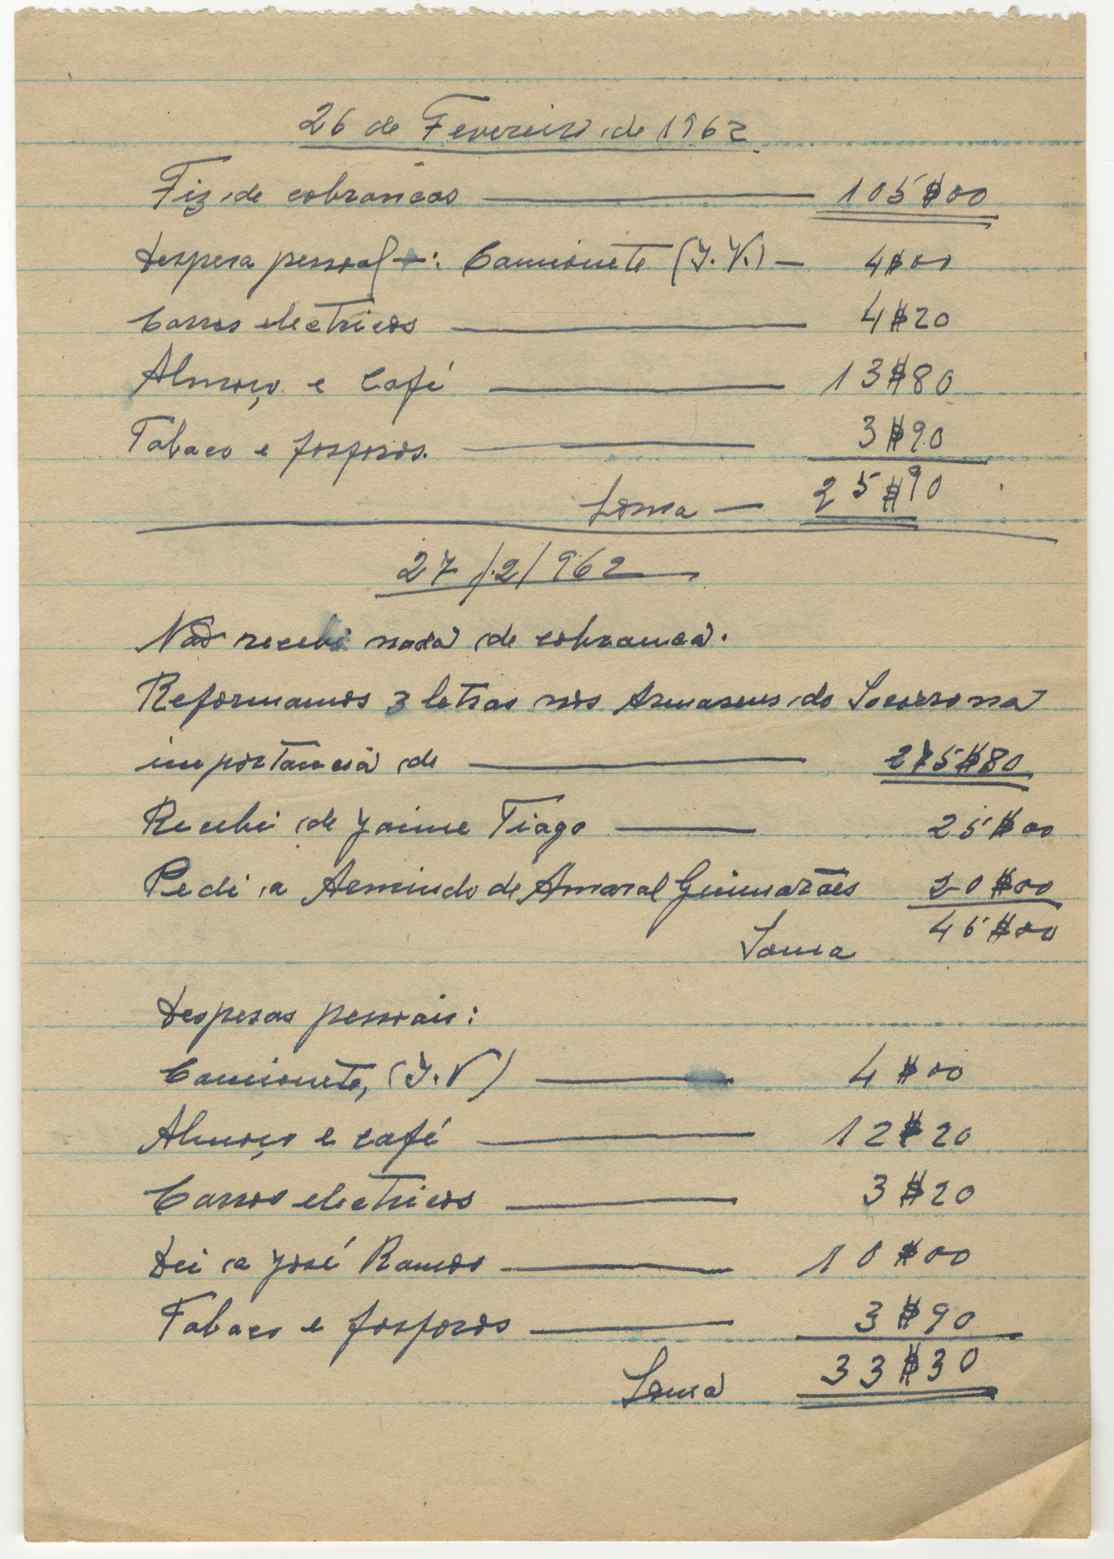 26 de Fevereiro de 1962
Fiz de cobrancas — 105$00
Despesa pessoal —: Camionete (J. V.) — 4$00
Carros electricos — 4$20
Almoço e Café — 13$80
Tabaco e fosforos. — 3$90
Soma — 25$90
27/2/962
Não recebi nada de cobranca.
Reformamos 3 letras nos Armasens do Socorro na
importancia de — 275$80
Recebi de Jaime Tiago — 25$00
Pedi a Armindo de Amaral Guimarães 20$00
Soma 45$00
Despesas pessoais:
Camionete, (J. V) — 4$00
Almoço e café — 12$20
Carros electricos — 3$20
Dei a José Ramos — 10$00
Tabaco e fosforos — 3$90
Soma 33$30